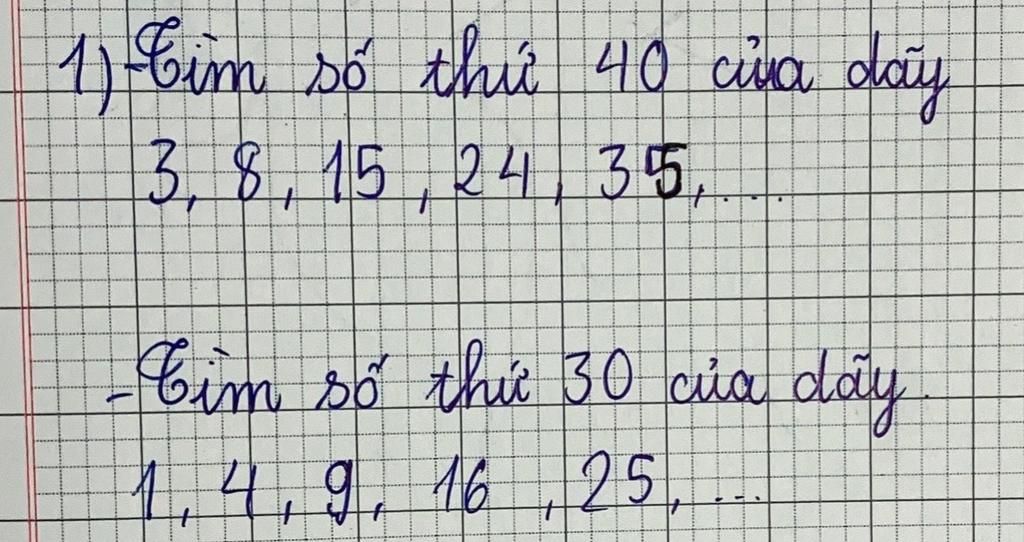 1) - Tìm số thứ 40 của dãy
3, 8, 15, 24, 35, ...
- Tìm số thứ 30 của dãy.
1, 4, 9, 16, 25, ...